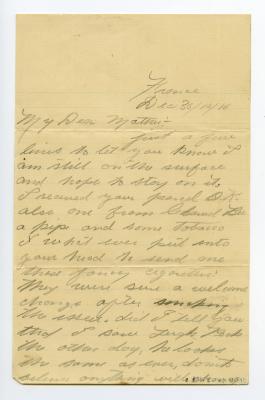 France
Dec 30/12/16
My Dear Mother:-
just a few
lines to let you know I
am still on the surface
and hope to stay on it.
I received your parcel O.K.
also one from
a pipe and some tobacco
I what ever put into
your head to send me
those fancy cigarettes.
They were sure a welcome
change after smoking
the issue. did I tell you
that I saw
the other day, he looks
the same as ever, don't
believe anything